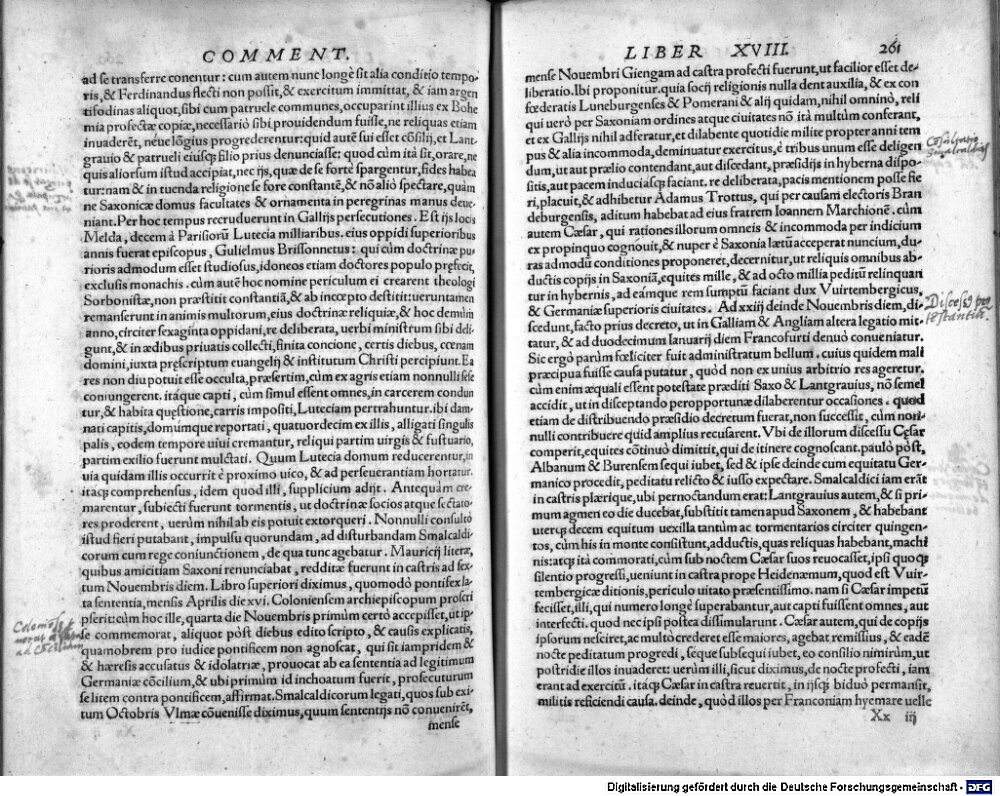 COMMENT.
ad se transferre conentur: cum autem nunc longè sit alia conditio tempo-
ris, & Ferdinandus flecti non possit, & exercitum immittat, & iam argen
tifodinas aliquot, sibi cum patruele communes, occuparint illius ex Bohe
mia profectæ copiæ, necessariò sibi prouidendum fuisse, ne reliquas etiam
inuaderẽt, néue lõgius progrederentur: quid autẽ sui esset cõsilij, et Lant-
grauio & patrueli eiusq́ꝫ filio prius denunciasse: quod cùm ità sit, orare, ne
quis aliorsum istud accipiat, nec ijs, quæ de se fortè spargentur, fides habea
tur: nam & in tuenda religione se fore constantẽ, & nõ aliò spectare, quàm
ne Saxonicæ domus facultates & ornamenta in peregrinas manus deue-
niant. Per hoc tempus recruduerunt in Gallijs persecutiones. Est ijs locis
Melda, decem à Parisiorũ Lutecia milliaribus. eius oppidi superioribus
annis fuerat episcopus, Gulielmus Brissonnetus: qui cùm doctrinæ pu-
rioris admodum esset studiosus, idoneos etiam doctores populo pręfecit,
exclusis monachis. cùm autẽ hoc nomine periculum ei crearent theologi
Sorbonistæ, non præstitit constantiã, & ab incœpto destitit: ueruntamen
remanserunt in animis multorum, eius doctrinæ reliquiæ, & hoc demùm
anno, circiter sexaginta oppidani, re deliberata, uerbi ministrum sibi deli-
gunt, & in ædibus priuatis collecti, finita concione, certis diebus, cœnam
domini, iuxta pręscriptum euangelij & institutum Christi percipiunt. Ea
res non diu potuit esse occulta, præsertim, cùm ex agris etiam nonnulli sese
coniungerent. itaque capti, cùm simul essent omnes, in carcerem condun
tur, & habita quęstione, carris impositi, Luteciam pertrahuntur. ibi dam-
nati capitis, domumque reportati, quatuordecim ex illis, alligati singulis
palis, eodem tempore uiui cremantur, reliqui partim uirgis & fustuario,
partim exilio fuerunt mulctati. Quum Lutecia domum reducerentur, in
uia quidam illis occurrit è proximo uico, & ad perseuerantiam hortatur.
itaqꝫ comprehensus, idem quod illi, supplicium adijt. Antequàm cre-
marentur, subiecti fuerunt tormentis, ut doctrinæ socios atque sectato-
res proderent, uerùm nihil ab eis potuit extorqueri. Nonnulli consultò
istud fieri putabant, impulsu quorundam, ad disturbandam Smalcaldi-
corum cum rege coniunctionem, de qua tunc agebatur. Mauricij literæ,
quibus amicitiam Saxoni renunciabat, redditæ fuerunt in castris ad sex-
tum Nouembris diem. Libro superiori diximus, quomodò pontifex la-
ta sententia, mensis Aprilis die xvi. Coloniensem archiepiscopum proscri
pserit: cùm hoc ille, quarta die Nouembris primùm certò accepisset, ut ip-
se commemorat, aliquot pòst diebus edito scripto, & causis explicatis,
quamobrem pro iudice pontificem non agnoscat, qui sit iampridem &
& hæresis accusatus & idolatriæ, prouocat ab ea sententia ad legitimum
Germaniæ cõcilium, & ubi primùm id inchoatum fuerit, prosecuturum
se litem contra pontificem, affirmat. Smalcaldicorum legati, quos sub exi-
tum Octobris Vlmæ cõuenisse diximus, quum sententijs nõ conuenirẽt,
mense
LIBER XVIII. 261
mense Nouembri Giengam ad castra profecti fuerunt, ut facilior esset de-
liberatio. Ibi proponitur. quia socij religionis nulla dent auxilia, & ex con
fœderatis Luneburgenses & Pomerani & alij quidam, nihil omninò, reli
qui uerò per Saxoniam ordines atque ciuitates nõ ità multùm conferant,
et ex Gallijs nihil adferatur, et dilabente quotidie milite propter anni tem
pus & alia incommoda, deminuatur exercitus, è tribus unum esse deligen
dum, ut aut prælio contendant, aut discedant, præsidijs in hyberna dispo-
sitis, aut pacem induciasqꝫ faciant. re deliberata, pacis mentionem posse fie
ri, placuit, & adhibetur Adamus Trottus, qui per causam electoris Bran
deburgensis, aditum habebat ad eius fratrem Ioannem Marchionẽ. cùm
autem Cæsar, qui rationes illorum omneis & incommoda per indicium
ex propinquo cognouit, & nuper è Saxonia lætũ acceperat nuncium, du-
ras admodũ conditiones proponeret, decernitur, ut reliquis omnibus ab-
ductis copijs in Saxoniã, equites mille, & ad octo millia peditũ relinquan
tur in hybernis, ad eámque rem sumptũ faciant dux Vuirtembergicus,
& Germaniæ superioris ciuitates. Ad xxiij deinde Nouembris diem, di-
scedunt, facto prius decreto, ut in Galliam & Angliam altera legatio mit-
tatur, & ad duodecimum Ianuarij diem Francofurti denuò conueniatur.
Sic ergò parùm fœliciter fuit administratum bellum. cuius quidem mali
præcipua fuisse causa putatur, quòd non ex unius arbitrio res ageretur.
cùm enim æquali essent potestate præditi Saxo & Lantgrauius, nõ semel
accidit, ut in disceptando peropportunæ dilaberentur occasiones. quod
etiam de distribuendo præsidio decretum fuerat, non successit, cùm non-
nulli contribuere quid amplius recusarent. Vbi de illorum discessu Cęsar
comperit, equites cõtinuò dimittit, qui de itinere cognoscant. paulò pòst,
Albanum & Burensem sequi iubet, sed & ipse deinde cum equitatu Ger-
manico procedit, peditatu relicto & iusso expectare. Smalcaldici iam erãt
in castris plærique, ubi pernoctandum erat: Lantgrauius autem, & si pri-
mum agmen eo die ducebat, substitit tamen apud Saxonem, & habebant
uterqꝫ decem equitum uexilla tantùm ac tormentarios circiter quingen-
tos, cùm his in monte consistunt, adductis, quas reliquas habebant, machi
nis: atqꝫ ità commorati, cùm sub noctem Cæsar suos reuocasset, ipsi quoqꝫ
silentio progressi, ueniunt in castra prope Heidenæmum, quod est Vuir-
tembergicæ ditionis, periculo uitato præsentissimo. nam si Cæsar impetũ
fecisset, illi, qui numero longè superabantur, aut capti fuissent omnes, aut
interfecti. quod nec ipsi postea dissimularunt. Cæsar autem, qui de copijs
ipsorum nesciret, ac multò crederet esse maiores, agebat remissius, & eadẽ
nocte peditatum progredi, seque subsequi iubet, eo consilio nimirùm, ut
postridie illos inuaderet: uerùm illi, sicut diximus, de nocte profecti, iam
erant ad exercitũ. itaqꝫ Cæsar in castra reuertit, in ijsqꝫ biduò permansit,
militis reficiendi causa. deinde, quòd illos per Franconiam hyemare uelle
Xx iij
Digitalisierung gefördert durch die Deutsche Forschungsgemeinschaft - DFG